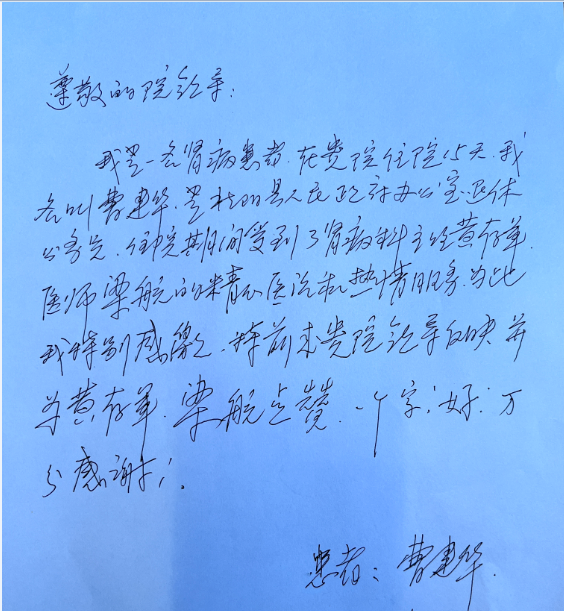 尊敬的院领导:
我是一名肾病患者.在贵院住院15天.我
名叫曹建华.是县人民政府办公室退休
公务员.住院期间受到了肾病科主任黄存军.
医师梁航的精心医治和热情服务.为此
我特别感激.特前来贵院领导反映并
为黄存军.梁航点赞.一个字:好:万
分感谢!
患者:曹建华.